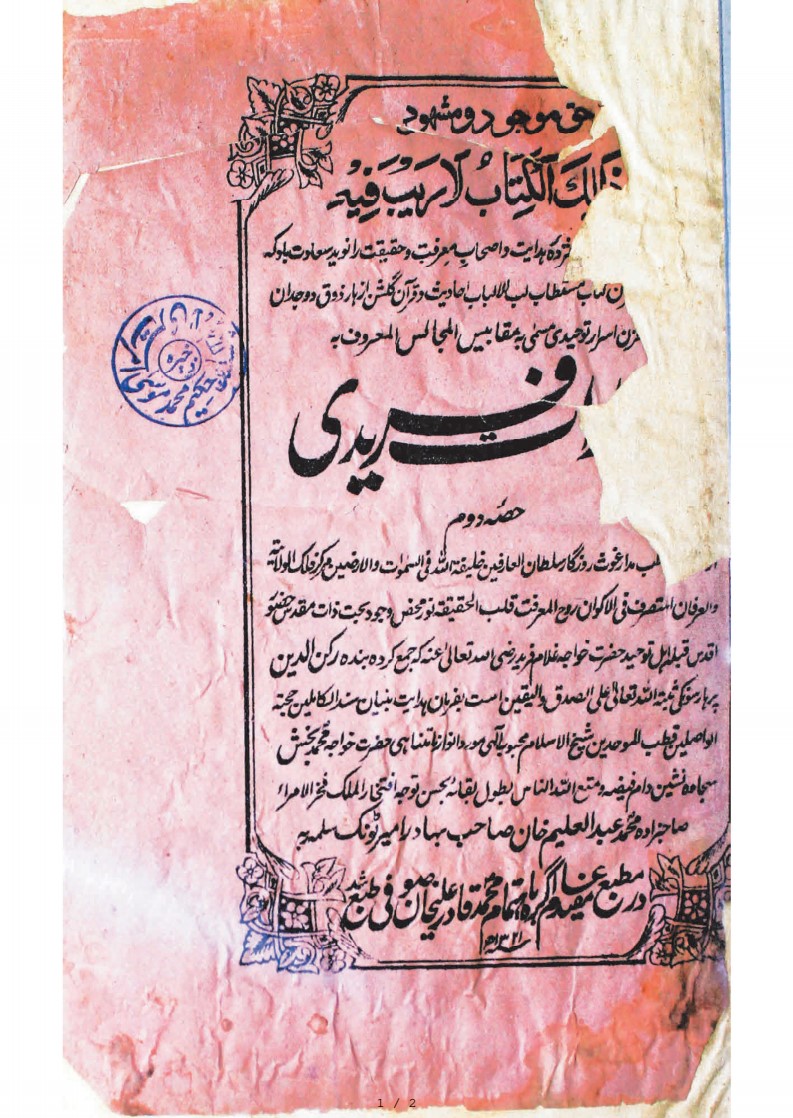 حق موجود و مشهود
ذالِكَ الْكِتَابُ لَا رَيْبَ فِيْهِ
هدایت و اصحاب معرفت و حقیقت را نوید سعادت باد که
مستطاب لب الالباب احادیث و قرآن گلشن ازهار ذوق و وجدان
اسرار توحیدی مسمی به مقابیس المجالس المعروف به
فریدی
حصّه دوم
مدار غوث روزگار سلطان العارفین خلیفة اللہ فی السموات والارضین مرکز فلک الولایة
والعرفان المتصرف فی الاکوان روح المعرفت قلب الحقیقة نور محض وجود بحت ذات مقدس حضور
اقدس قبله اهل توحید حضرت خواجه غلام فرید رضی اللہ تعالی عنه که جمع کرده بنده رکن الدین
ثبته اللہ تعالیٰ علی الصدق والیقین است بفرمان هدایت بنیان سند الکاملین حجة
الواصلین قطب الموحدین شیخ الاسلام محبوب الٰهی مورد انوار نامتناهی حضرت خواجه محمد بخش
سجاده نشین دام فیضه و متع اللہ الناس بطول بقائه بحسن توجه افتخار الملک فخر الامراء
صاحبزاده محمد عبد العلیم خان صاحب بهادر امیر ٹونک سلمه به
در مطبع مفید عام آگره باهتمام محمد قادر علیخان صوفی طبع شد
۱۳۲۱ه
ذخیره
حکیم محمد موسیٰ
1 / 2